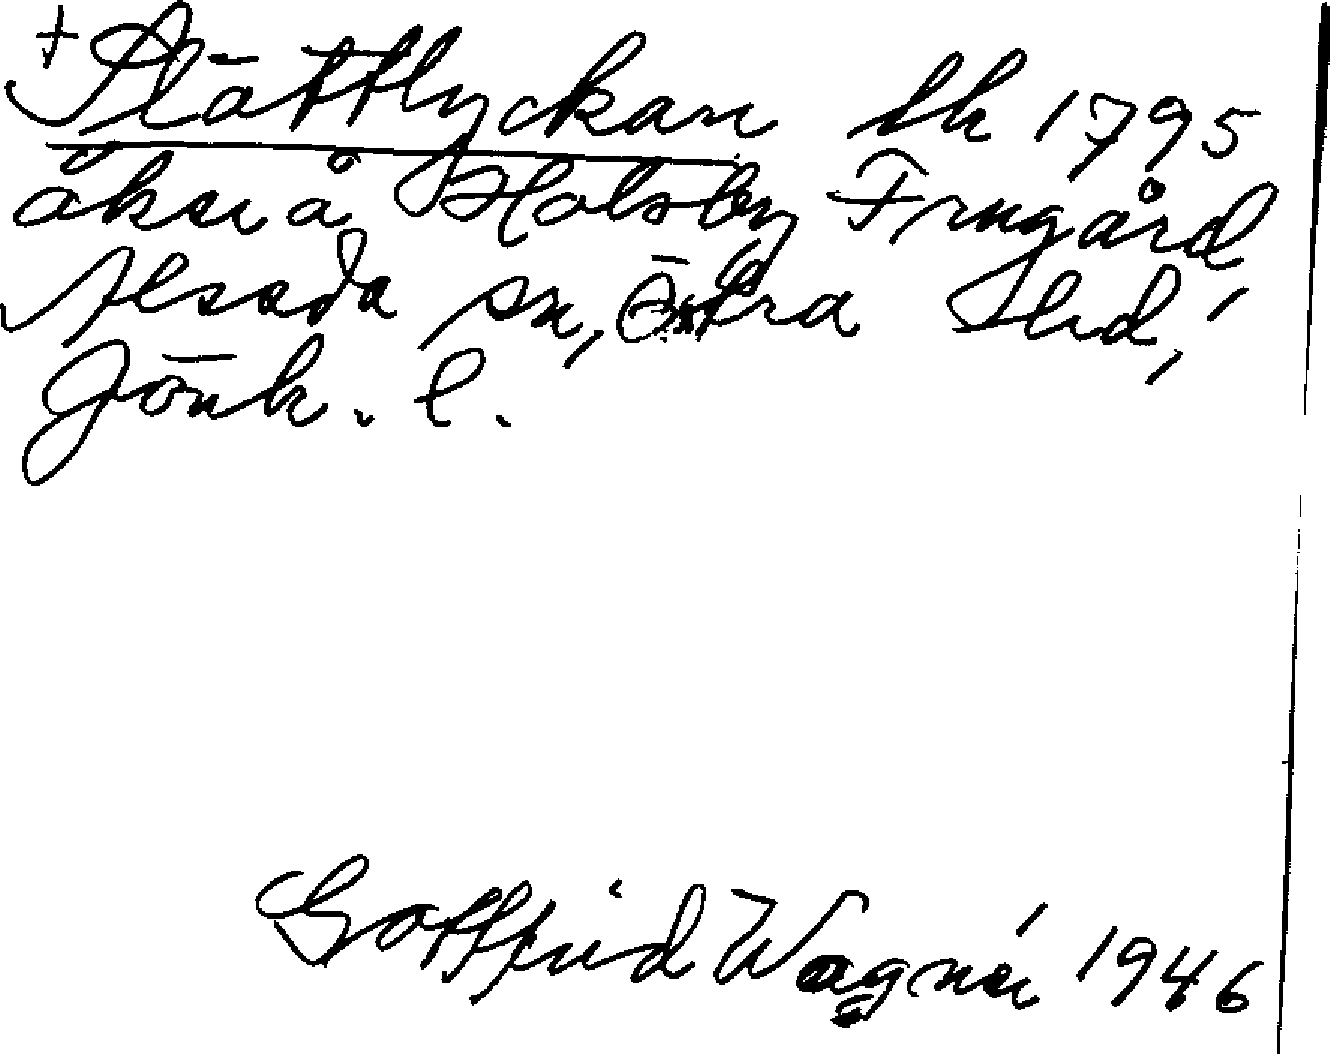 + Slättlyckan lk 1795
åker å Holsby Frugård,
Alseda sn, Östra Hd,
Jönk. l.
Gottfrid Wagnér 1946